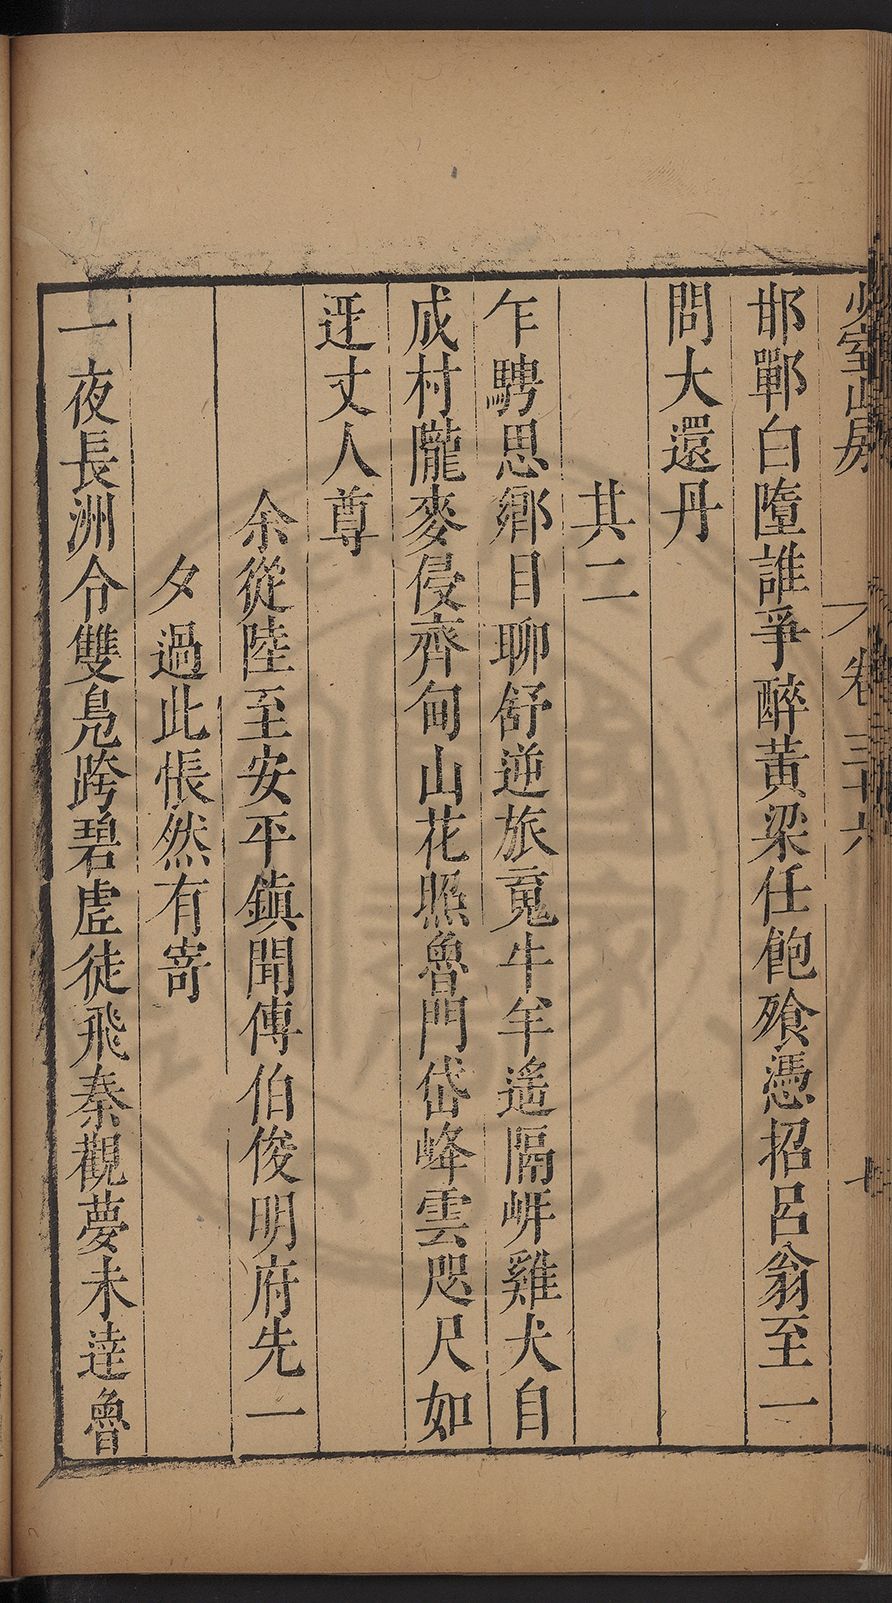 少室山房
卷三十六
邯鄲白墮誰爭醉黃粱任飽飱憑招呂翁至一
問大還丹
其二
乍騁思鄉目聊舒逆旅䰟牛羊遙隔㟁雞犬自
成村隴麥侵齊甸山花照魯門岱峰雲咫尺如
迓丈人尊
余從陸至安平鎮聞傳伯俊明府先一
夕過此悵然有寄
一夜長洲令雙鳧跨碧虛徒飛秦觀夢未達魯